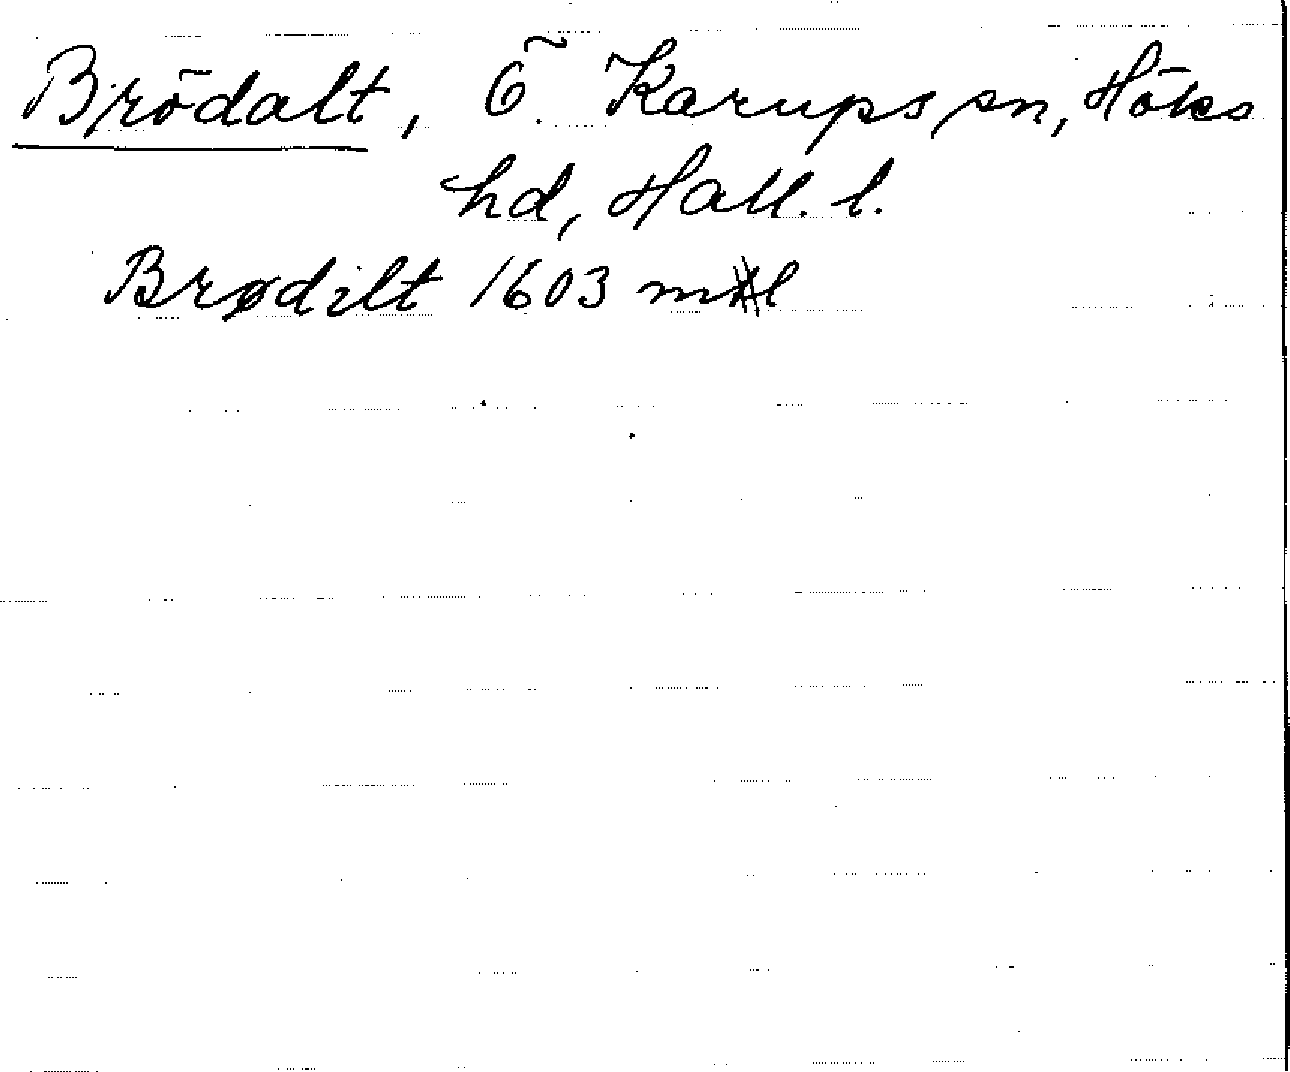 Brödalt, Ö. Karups sn, Höks
hd, Hall. l.
Brødilt 1603